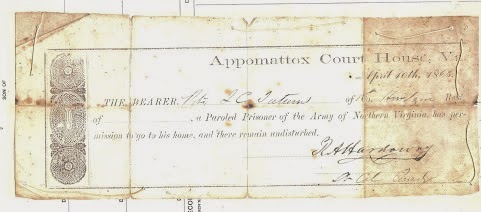 Appomattox Court House, Va.
April 10th, 1865.
THE BEARER, Pvt L C Tatum of
of , a Paroled Prisoner of the Army of Northern Virginia, has per-
mission to go to his home, and there remain undisturbed.
R A Hardaway
Lt Col
SON OF